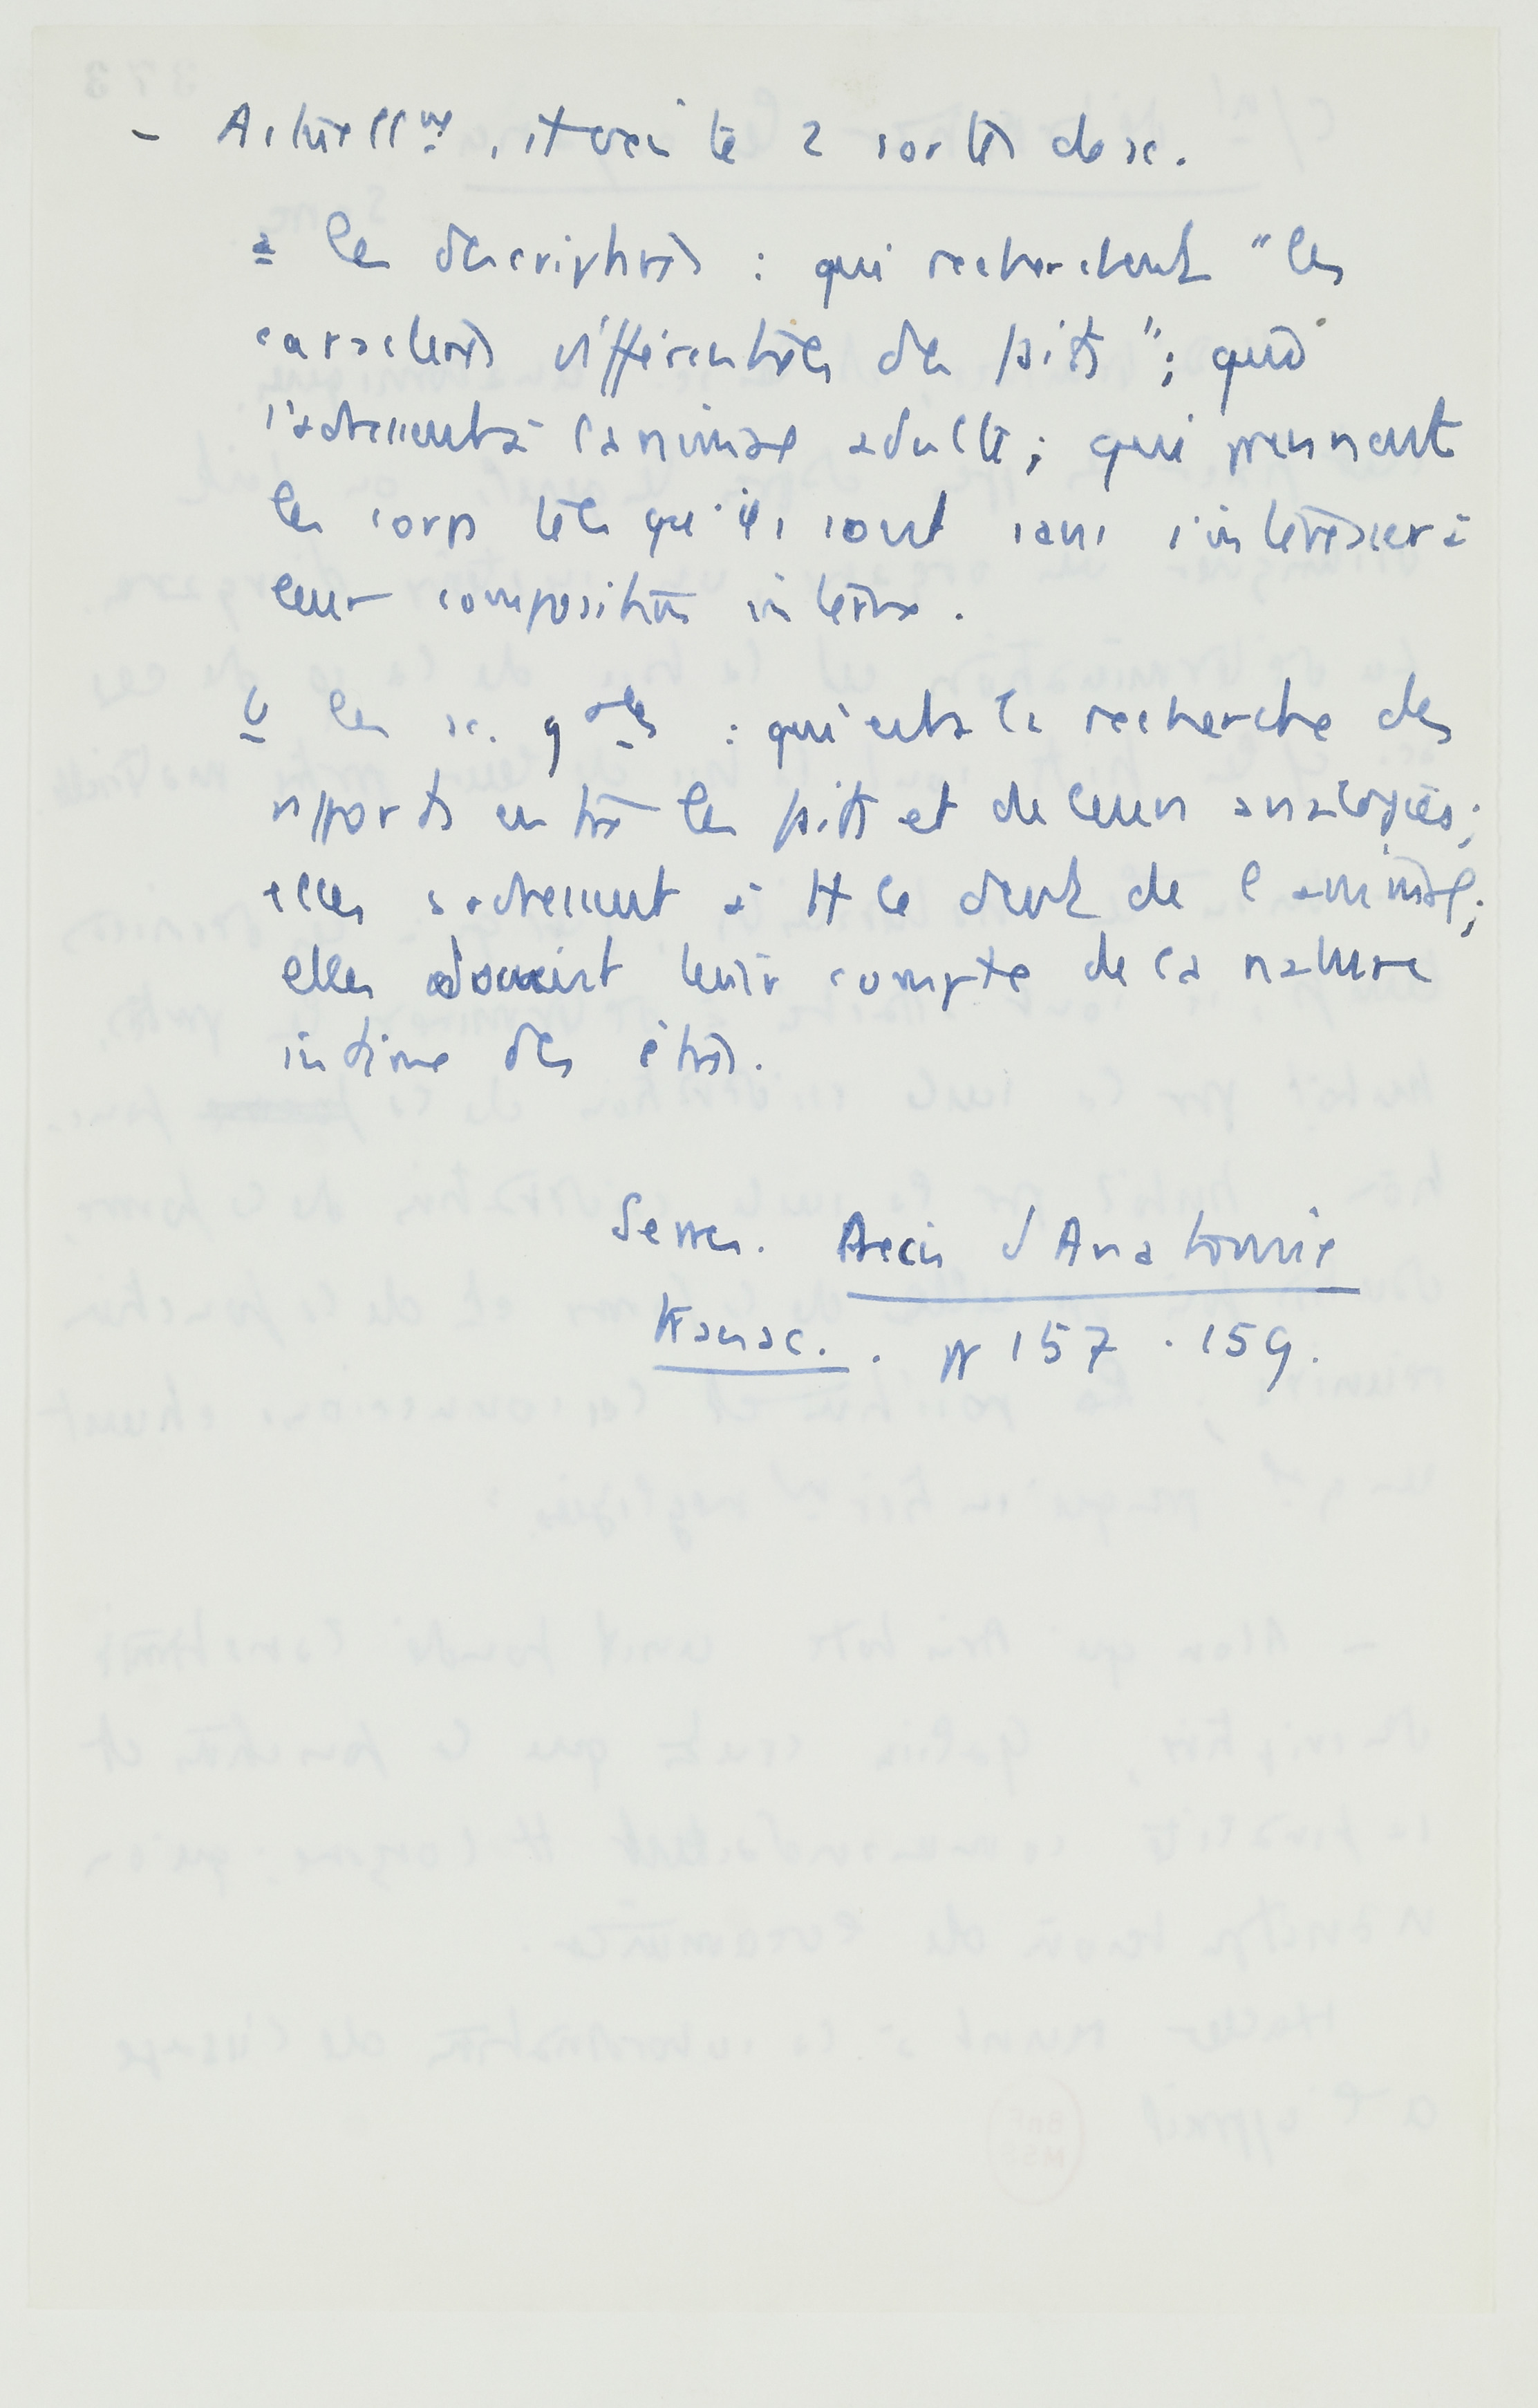 - Actuellmt, il existe 2 sortes de sc.
a les descriptives : qui recherchent "les
caractères différentiels des pits"; qui
s'adressent à l'animal adulte; qui prennent
les corps tels qu'ils sont sans s'intéresser à
leur composition interne.
b les sc. gales : qui ont la recherche des
rpports entre les pits et de leurs analogies;
elles s'adressent à tt le dvt de l'animal;
elles doivent tenir compte de la nature
intime des êtres.
Serres. Précis d'Anatomie
transc. . pp 157 . 159.